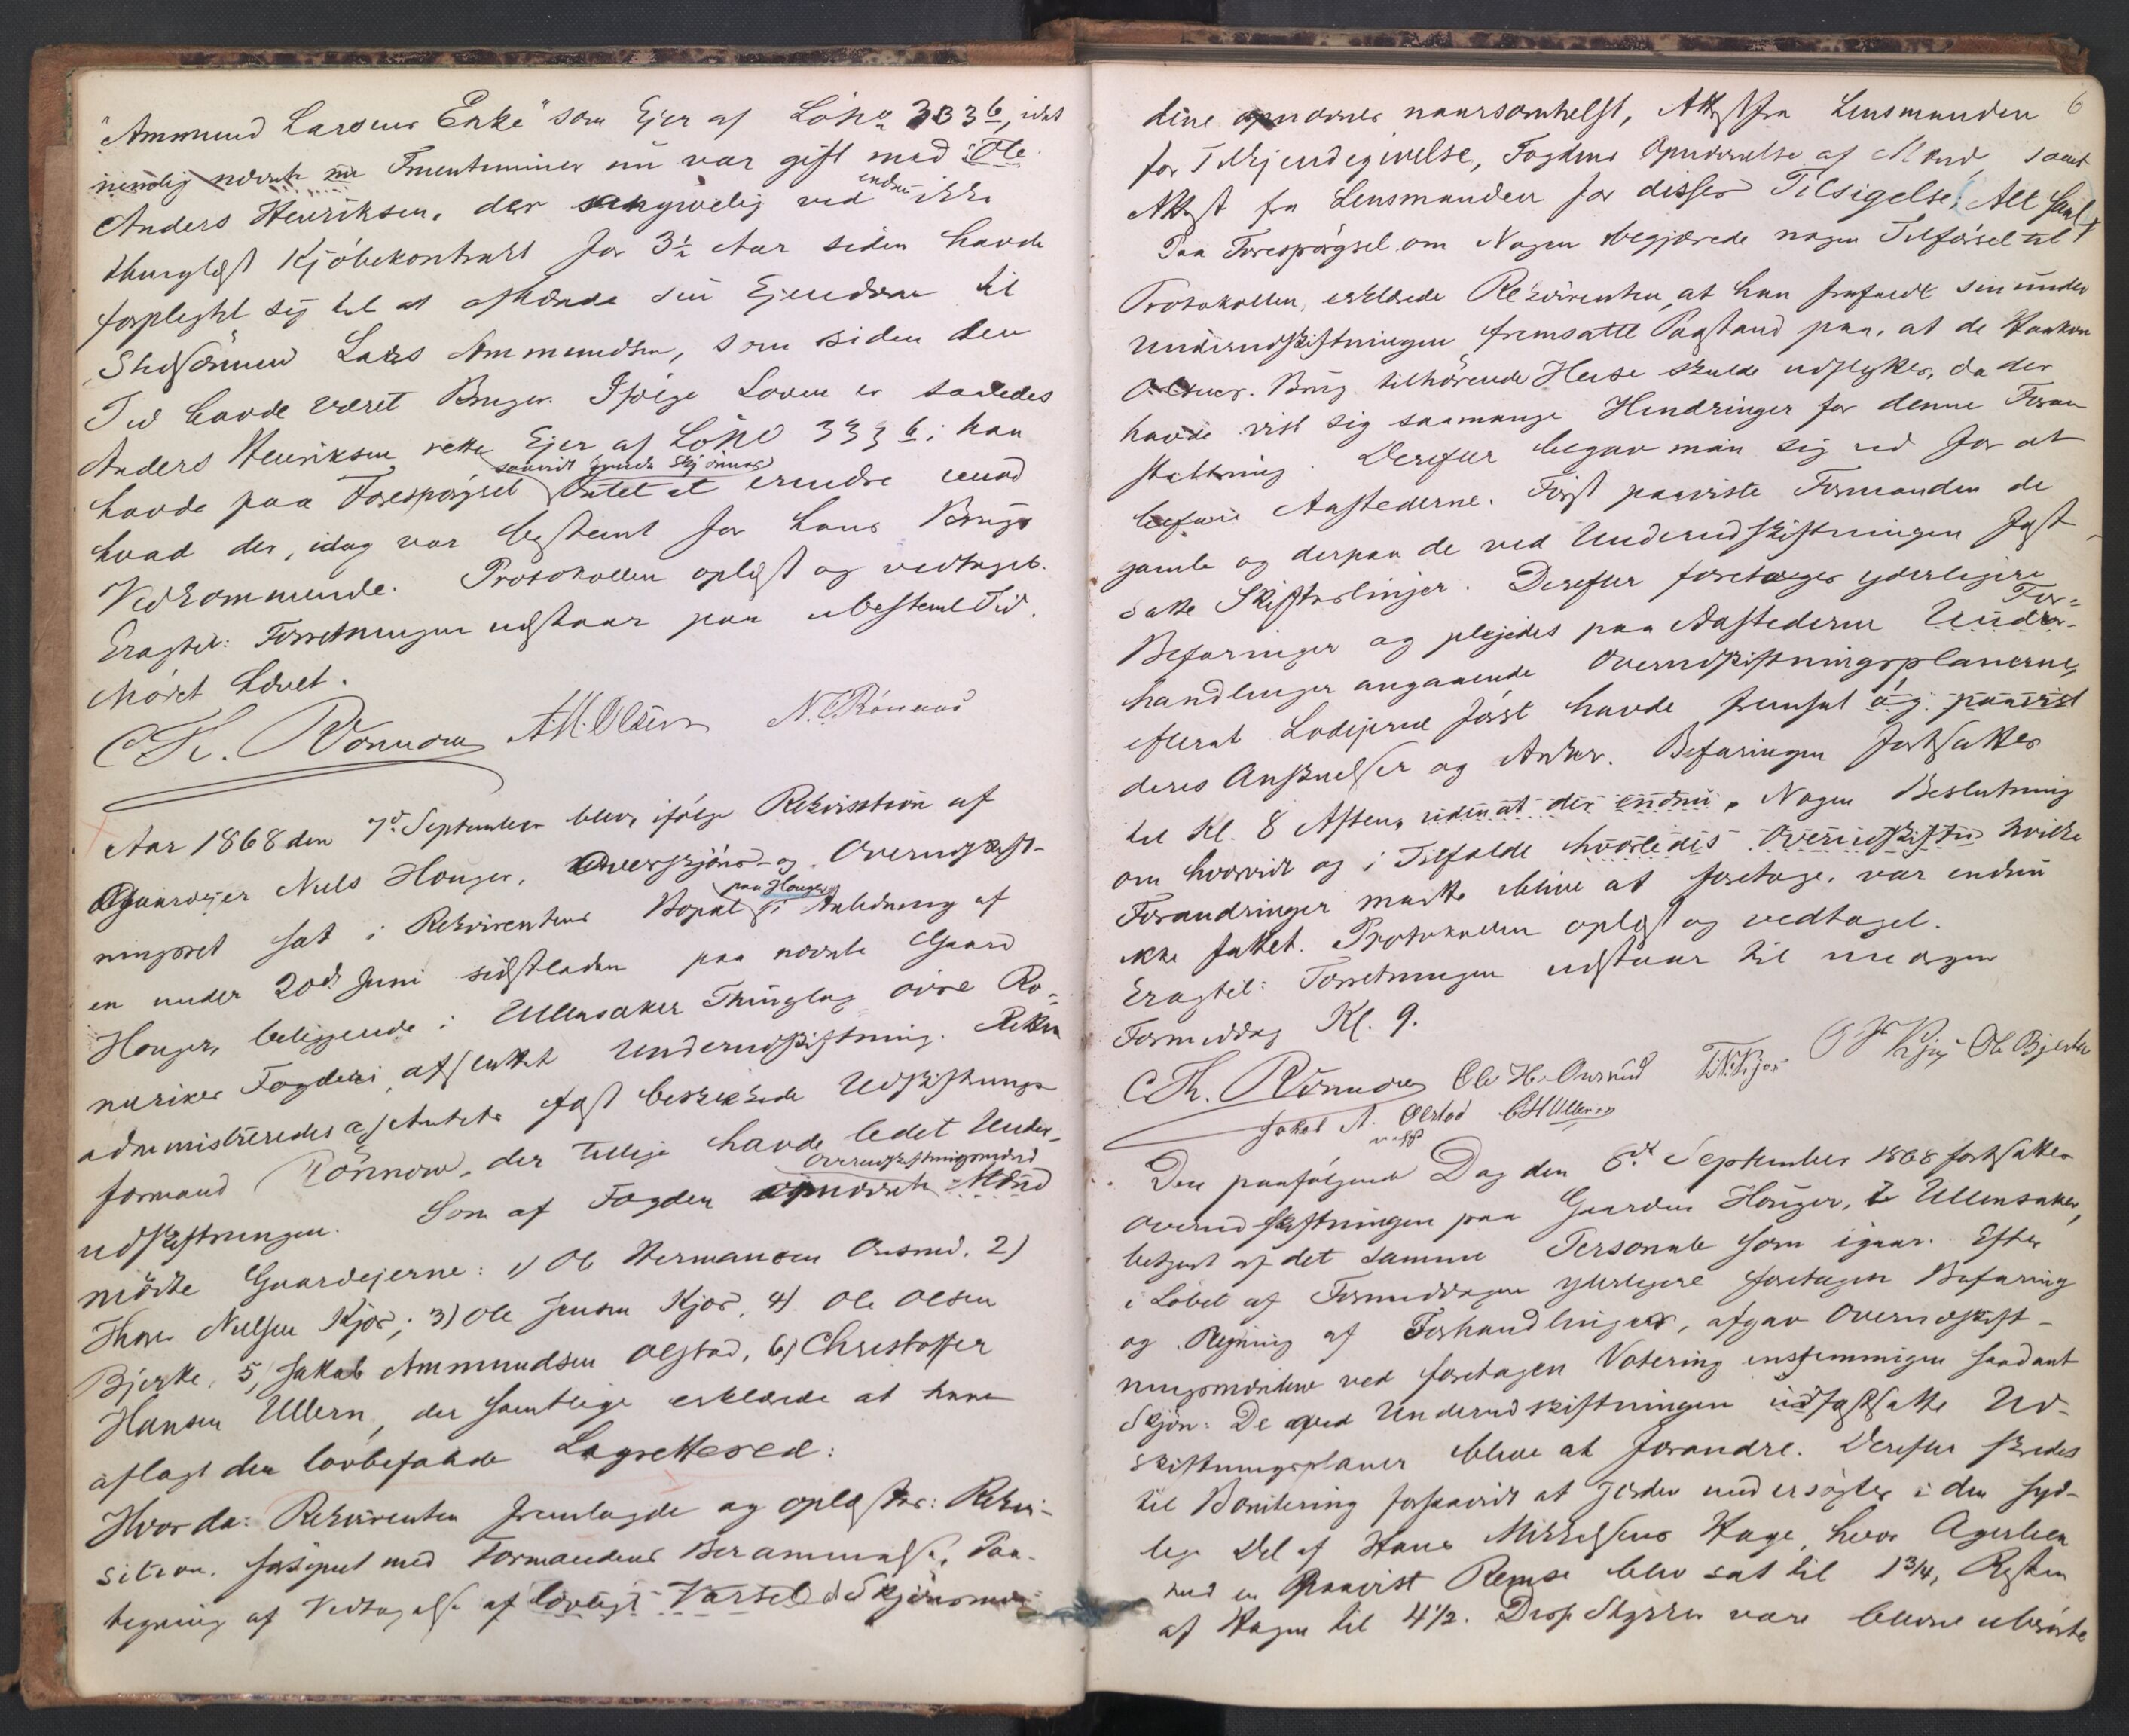 "Ammund Larsens Enke" som Ejer af LöNo 333 b, idet
nemlig nævnte Enke nu var gift med Ole
Anders Henriksen, der angivelig ved endnu ikke
thinglyst Kjöbekontrakt for 3½ Aar siden havde
forpligtet sig til at afhænde sin Ejendom til
Stedsönnen Lars Ammundsen, som siden den
Tid havde været Bruger. Ifölge Loven er saaledes
Anders Henriksen rette Ejer af LöNo 333 b; han
havde paa Forespörgsel Intet at erindre mod
hvad der, idag var bestemt for hans Brugs
Vedkommende. Protokollen oplæst og vedtaget.
Eragtet: Forretningen udstaar paa ubestemt Tid.
Mödet hævet.
C Th. Rönnow A.M. Olsen N. C. Rönnow
Aar 1868 den 7de September blev, ifölge Rekvisition af
Gaardejer Niels Houger, Overskjöns- og Overudskift-
ningsret sat i Rekvirentens Bopæl paa Houger i Anledning af
en under 20de Juni sidstleden paa nævnte Gaard
Houger, beliggende i Ullensaker Thinglag övre Ro-
merikes Fogderi, afsluttet Underudskiftning. Retten
administreredes af Amtets fast beskikkede Udskiftnings-
formand Rönnow, der tillige havde ledet Under-
udskiftningen. Som af Fogden opnævnte Overudskiftningsmænd
mödte Gaardejerne: 1) Ole Hermansen Onsrud. 2)
Hans Nielsen Kjos; 3) Ole Jensen Kjos, 4) Ole Olsen
Bjerke, 5) Jakob Ammundsen Olstad, 6) Christoffer
Hansen Ullern, der samtlige erklærede at have
aflagt den lovbefalede Lagrettesed:
Hvorda: Rekvirenten fremlagde og oplæstes: Rekvi-
sition, forsynet med Formandens Berammelse, Paa-
tegning af Vedtagelse af lovligt Varsel
6
dine opnævnes naarsomhelst, Attest fra Lensmanden
for Tilkjendegivelse, Fogdens Opnævnelse af Mænd, samt
Attest fra Lensmanden for disses Tilsigelse. Alt
Paa Forespörgsel om Nogen begjærede nogen Tilförsel til
Protokollen, erklærede Rekvirenten, at han frafaldt sin under
Underudskiftningen fremsatte Paastand paa, at de Haakon
Brug tilhörende Huse skulde udflyttes, da der
havde vist sig saamange Hindringer for denne Foran
staltning. Derefter begav man sig ud for at
befare Aastederne. Först paaviste Formanden de
gamle og derpaa de ved Underudskiftningen fast
satte Skifteslinjer. Derefter foretoges yderligere
Befaringer og plejedes paa Aastederne For-
handlinger angaaende Overudskiftningsplanerne,
efterat Lodejerne först havde fremsat og paavist
deres Anskuelser og Anker. Befaringen fortsattes
til Kl. 8 Aften, uden at der endnu Nogen Beslutning
om hvorvidt og i Tilfælde hvorledes Overudskiftn hvilke
Forandringer maatte blive at foretage, var endnu
ikke fattet. Protokollen oplæst og vedtaget.
Eragtet: Forretningen udstaar til imorgen
Formiddag Kl. 9.
C Th. Rönnow Ole H. Onsrud H. N. Kjos O J Kjos Ole Bjerke
Jakob A. Olstad C H Ullern
Den paafölgende Dag den 8de September 1868 fortsattes
Overudskiftningen paa Gaarden Houger, i Ullensaker,
betjent af det samme Personale som igaar. Efter
i Löbet af Formiddagen yderligere foretagen Befaring
og Plejning af Forhandlinger, afgav Overudskift-
ningsmændene ved foretagen Votering enstemmigen saadant
Skjön: De ved Underudskiftningen fastsatte Ud-
skiftningsplaner blive at forandre. Derefter skredes
til Bonitering forsaavidt at Jorden undersögtes i den syd-
lige Del af Hans Mikkelsens Hage, hvor Ageren
med en paavist Remse blev sat til 1¾, Resten
af Hagen til 4½. Disse Stykker vare blevne uberörte